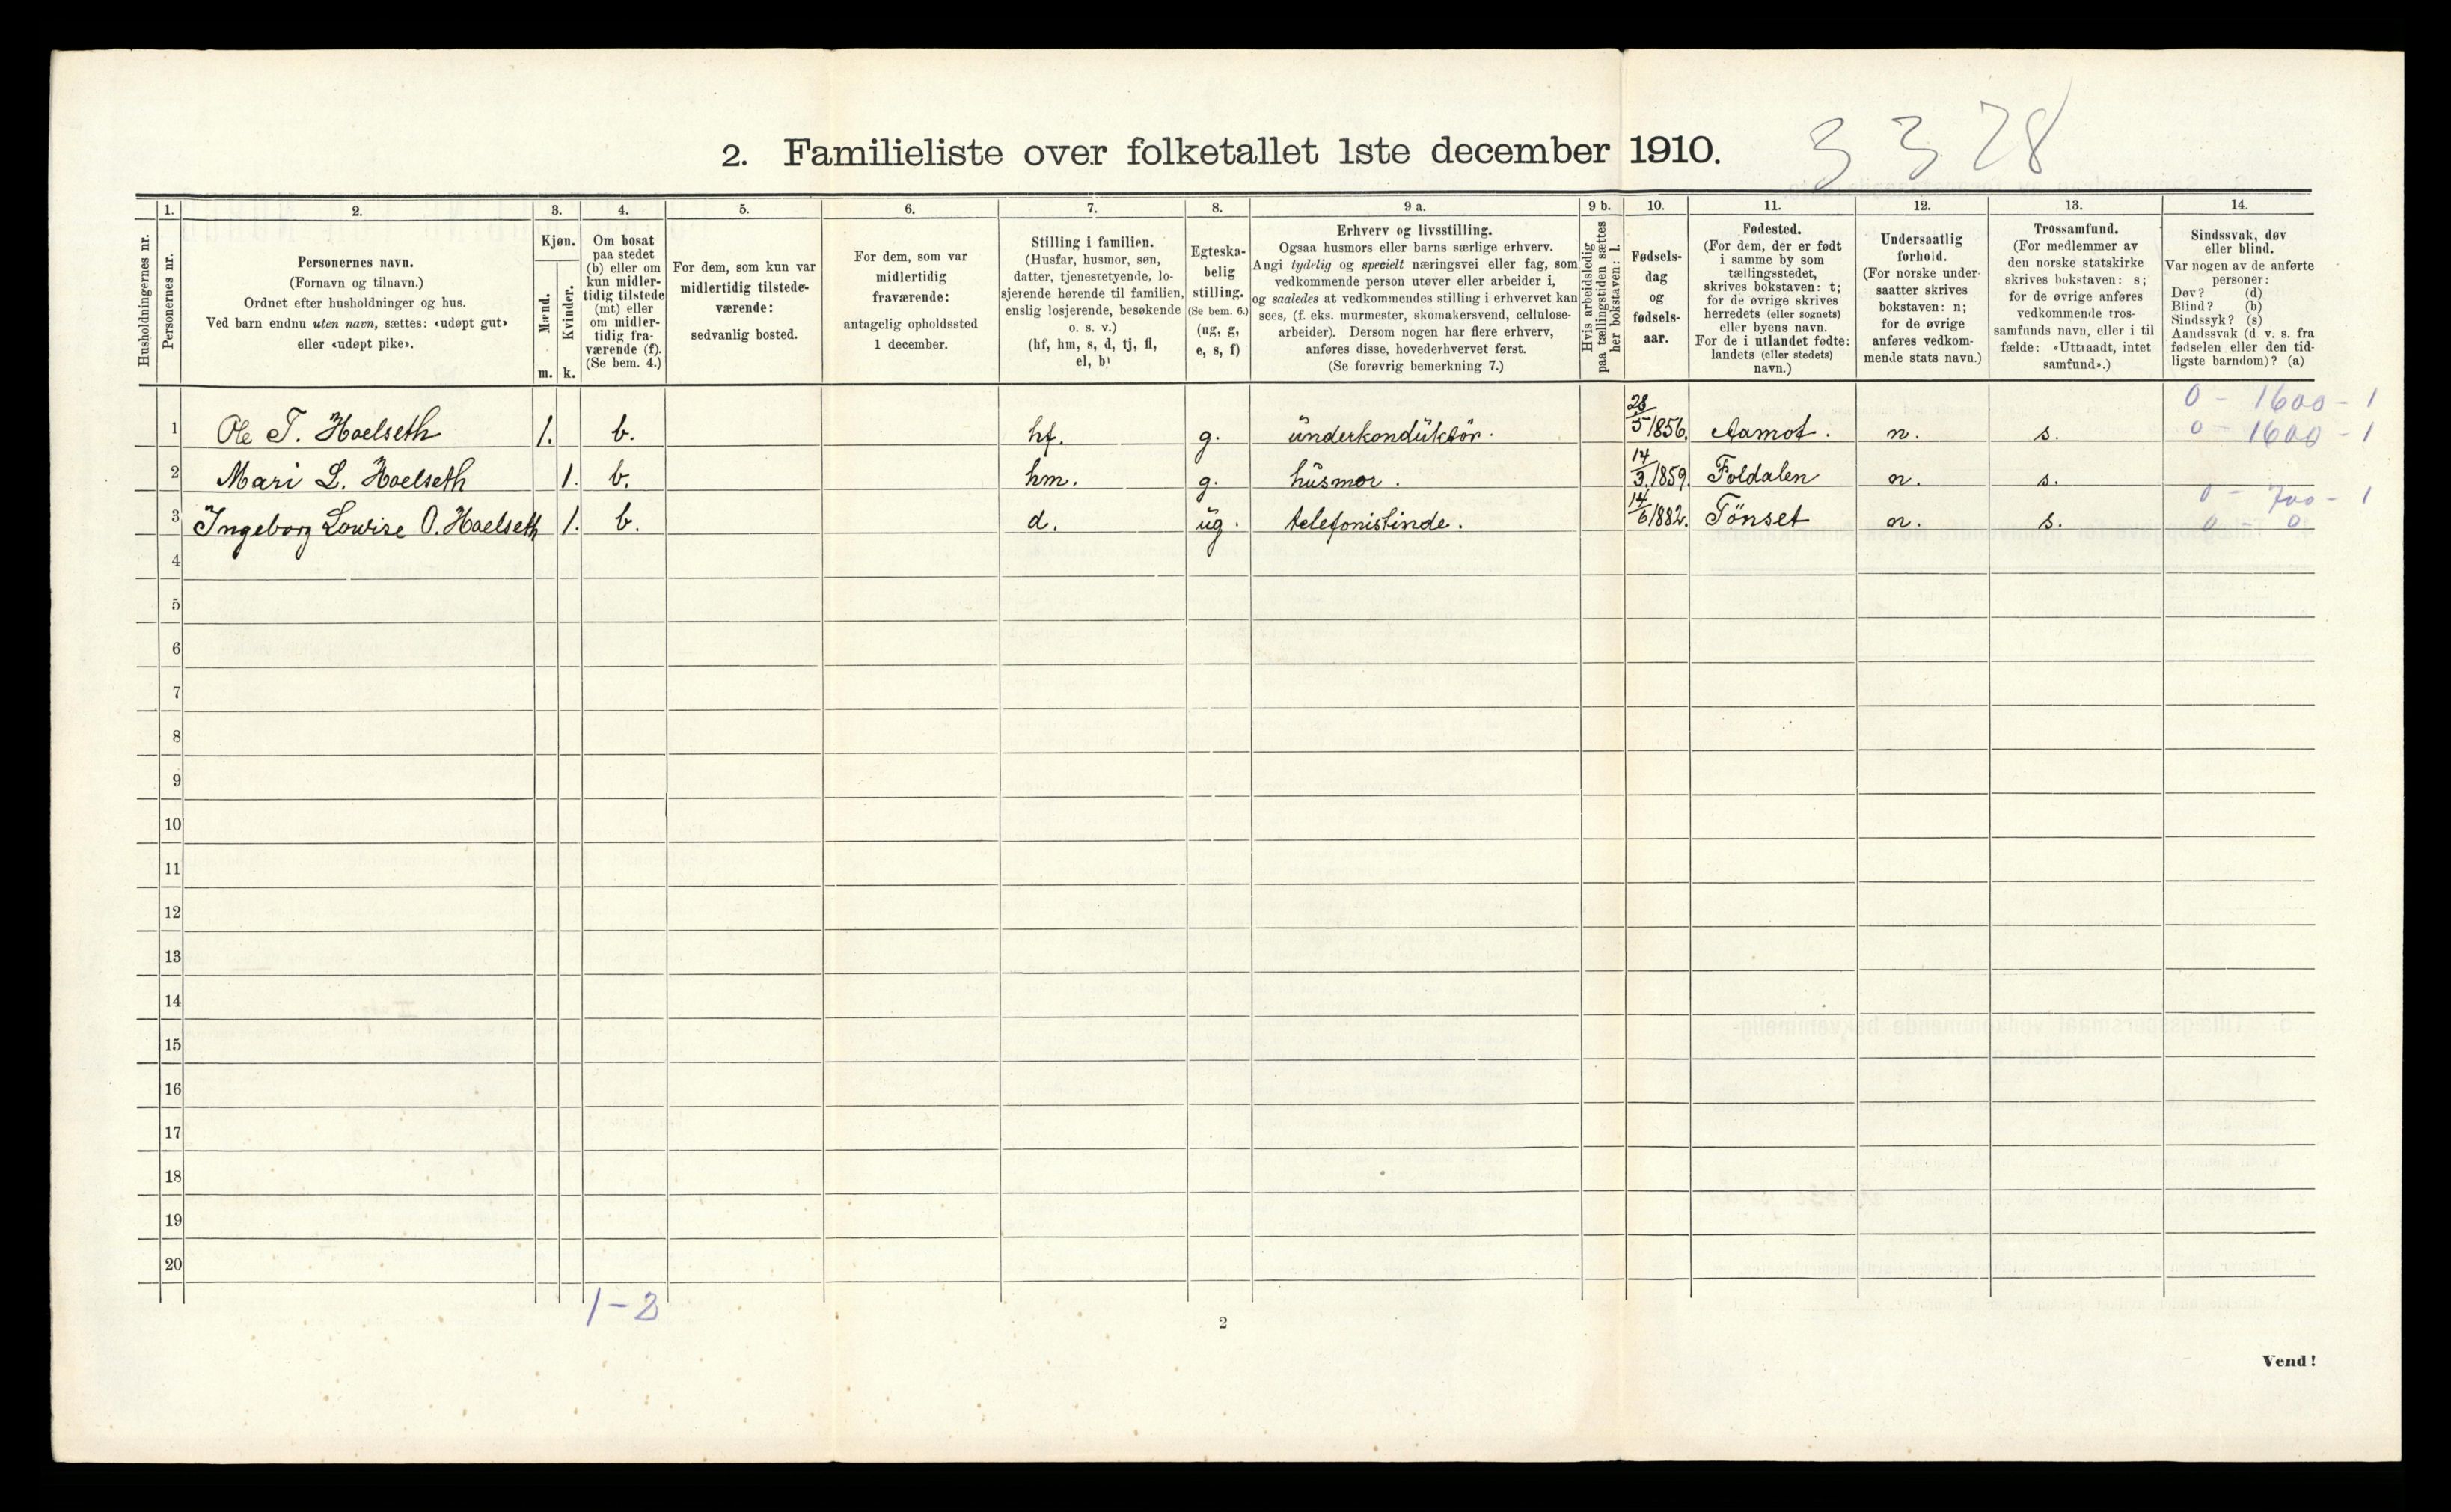 3 3 28
2. Familieliste over folketallet 1ste december 1910.
1. 2. 3. 4. 5. 6. 7. 8. 9 a. 9 b. 10. 11. 12. 13. 14.
Husholdningernes nr.
Personernes nr.
Personernes navn.
(Fornavn og tilnavn.)
Ordnet efter husholdninger og hus.
Ved barn endnu uten navn, sættes: «udøpt gut»
eller «udøpt pike».
Kjøn.
Mænd.
Kvinder.
m. k.
Om bosat
paa stedet
(b) eller om
kun midler-
tidig tilstede
(mt) eller
om midler-
tidig fra-
værende (f).
(Se bem. 4.)
For dem, som kun var
midlertidig tilstede-
værende:
sedvanlig bosted.
For dem, som var
midlertidig
fraværende:
antagelig opholdssted
1 december.
Stilling i familien.
(Husfar, husmor, søn,
datter, tjenestetyende, lo-
sjerende hørende til familien,
enslig losjerende, besøkende
o. s. v.)
(hf, hm, s, d, tj, fl,
el, b)
Egteska-
belig
stilling.
(Se bem. 6.)
(ug, g,
e, s, f)
Erhverv og livsstilling.
Ogsaa husmors eller barns særlige erhverv.
Angi tydelig og specielt næringsvei eller fag, som
vedkommende person utøver eller arbeider i,
og saaledes at vedkommendes stilling i erhvervet kan
sees, (f. eks. murmester, skomakersvend, cellulose-
arbeider). Dersom nogen har flere erhverv,
anføres disse, hovederhvervet først.
(Se forøvrig bemerkning 7.)
Hvis arbeidsledig
paa tællingstiden sættes
her bokstaven: l.
Fødsels-
dag
og
fødsels-
aar.
Fødested.
(For dem, der er født
i samme by som
tællingsstedet,
skrives bokstaven: t;
for de øvrige skrives
herredets (eller sognets)
eller byens navn.
For de i utlandet fødte:
landets (eller stedets)
navn.)
Undersaatlig
forhold.
(For norske under-
saatter skrives
bokstaven: n;
for de øvrige
anføres vedkom-
mende stats navn.)
Trossamfund.
(For medlemmer av
den norske statskirke
skrives bokstaven: s;
for de øvrige anføres
vedkommende tros-
samfunds navn, eller i til
fælde: «Uttraadt, intet
samfund».)
Sindssvak, døv
eller blind.
Var nogen av de anførte
personer:
Døv? (d)
Blind? (b)
Sindssyk? (s)
Aandssvak (d v. s. fra
fødselen eller den tid-
ligste barndom)? (a)
0 - 1600 - 1
1 Ole T. Hoelseth 1. b. hf. g. underkonduktör. 28/5 1856. Aamot. n. s. 0 - 1600 - 1
2 Mari L. Hoelseth 1. b. hm. g. husmor. 14/3 1859. Foldalen n. s.
0 - 700 - 1
3 Ingeborg Lowise O. Hoelseth 1. b. d. ug. telefonistinde. 14/6 1882. Tönset n. s. 0 - 0
4
5
6
7
8
9
10
11
12
13
14
15
16
17
18
19
20
1-2
2
Vend!